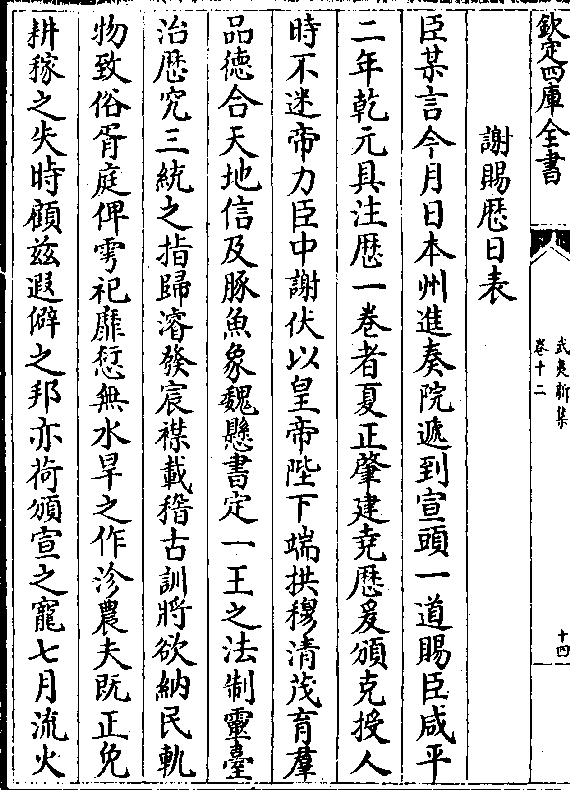 欽定四庫全書
武夷新集
卷十二
十四
謝賜厯日表
臣某言今月日本州進奏院遞到宣頭一道賜臣咸平
二年乾元具注厯一巻者夏正肇建堯厯爰頒克授人
時不迷帝力臣中謝伏以皇帝陛下端拱穆清茂育羣
品徳合天地信及豚魚象魏懸書定一王之法制靈臺
治厯究三統之指歸濬發宸襟載稽古訓將欲納民軌
物致俗胥庭俾雩祀靡愆無水旱之作沴農夫既正免
耕稼之失時顧兹遐僻之邦亦荷頒宣之寵七月流火